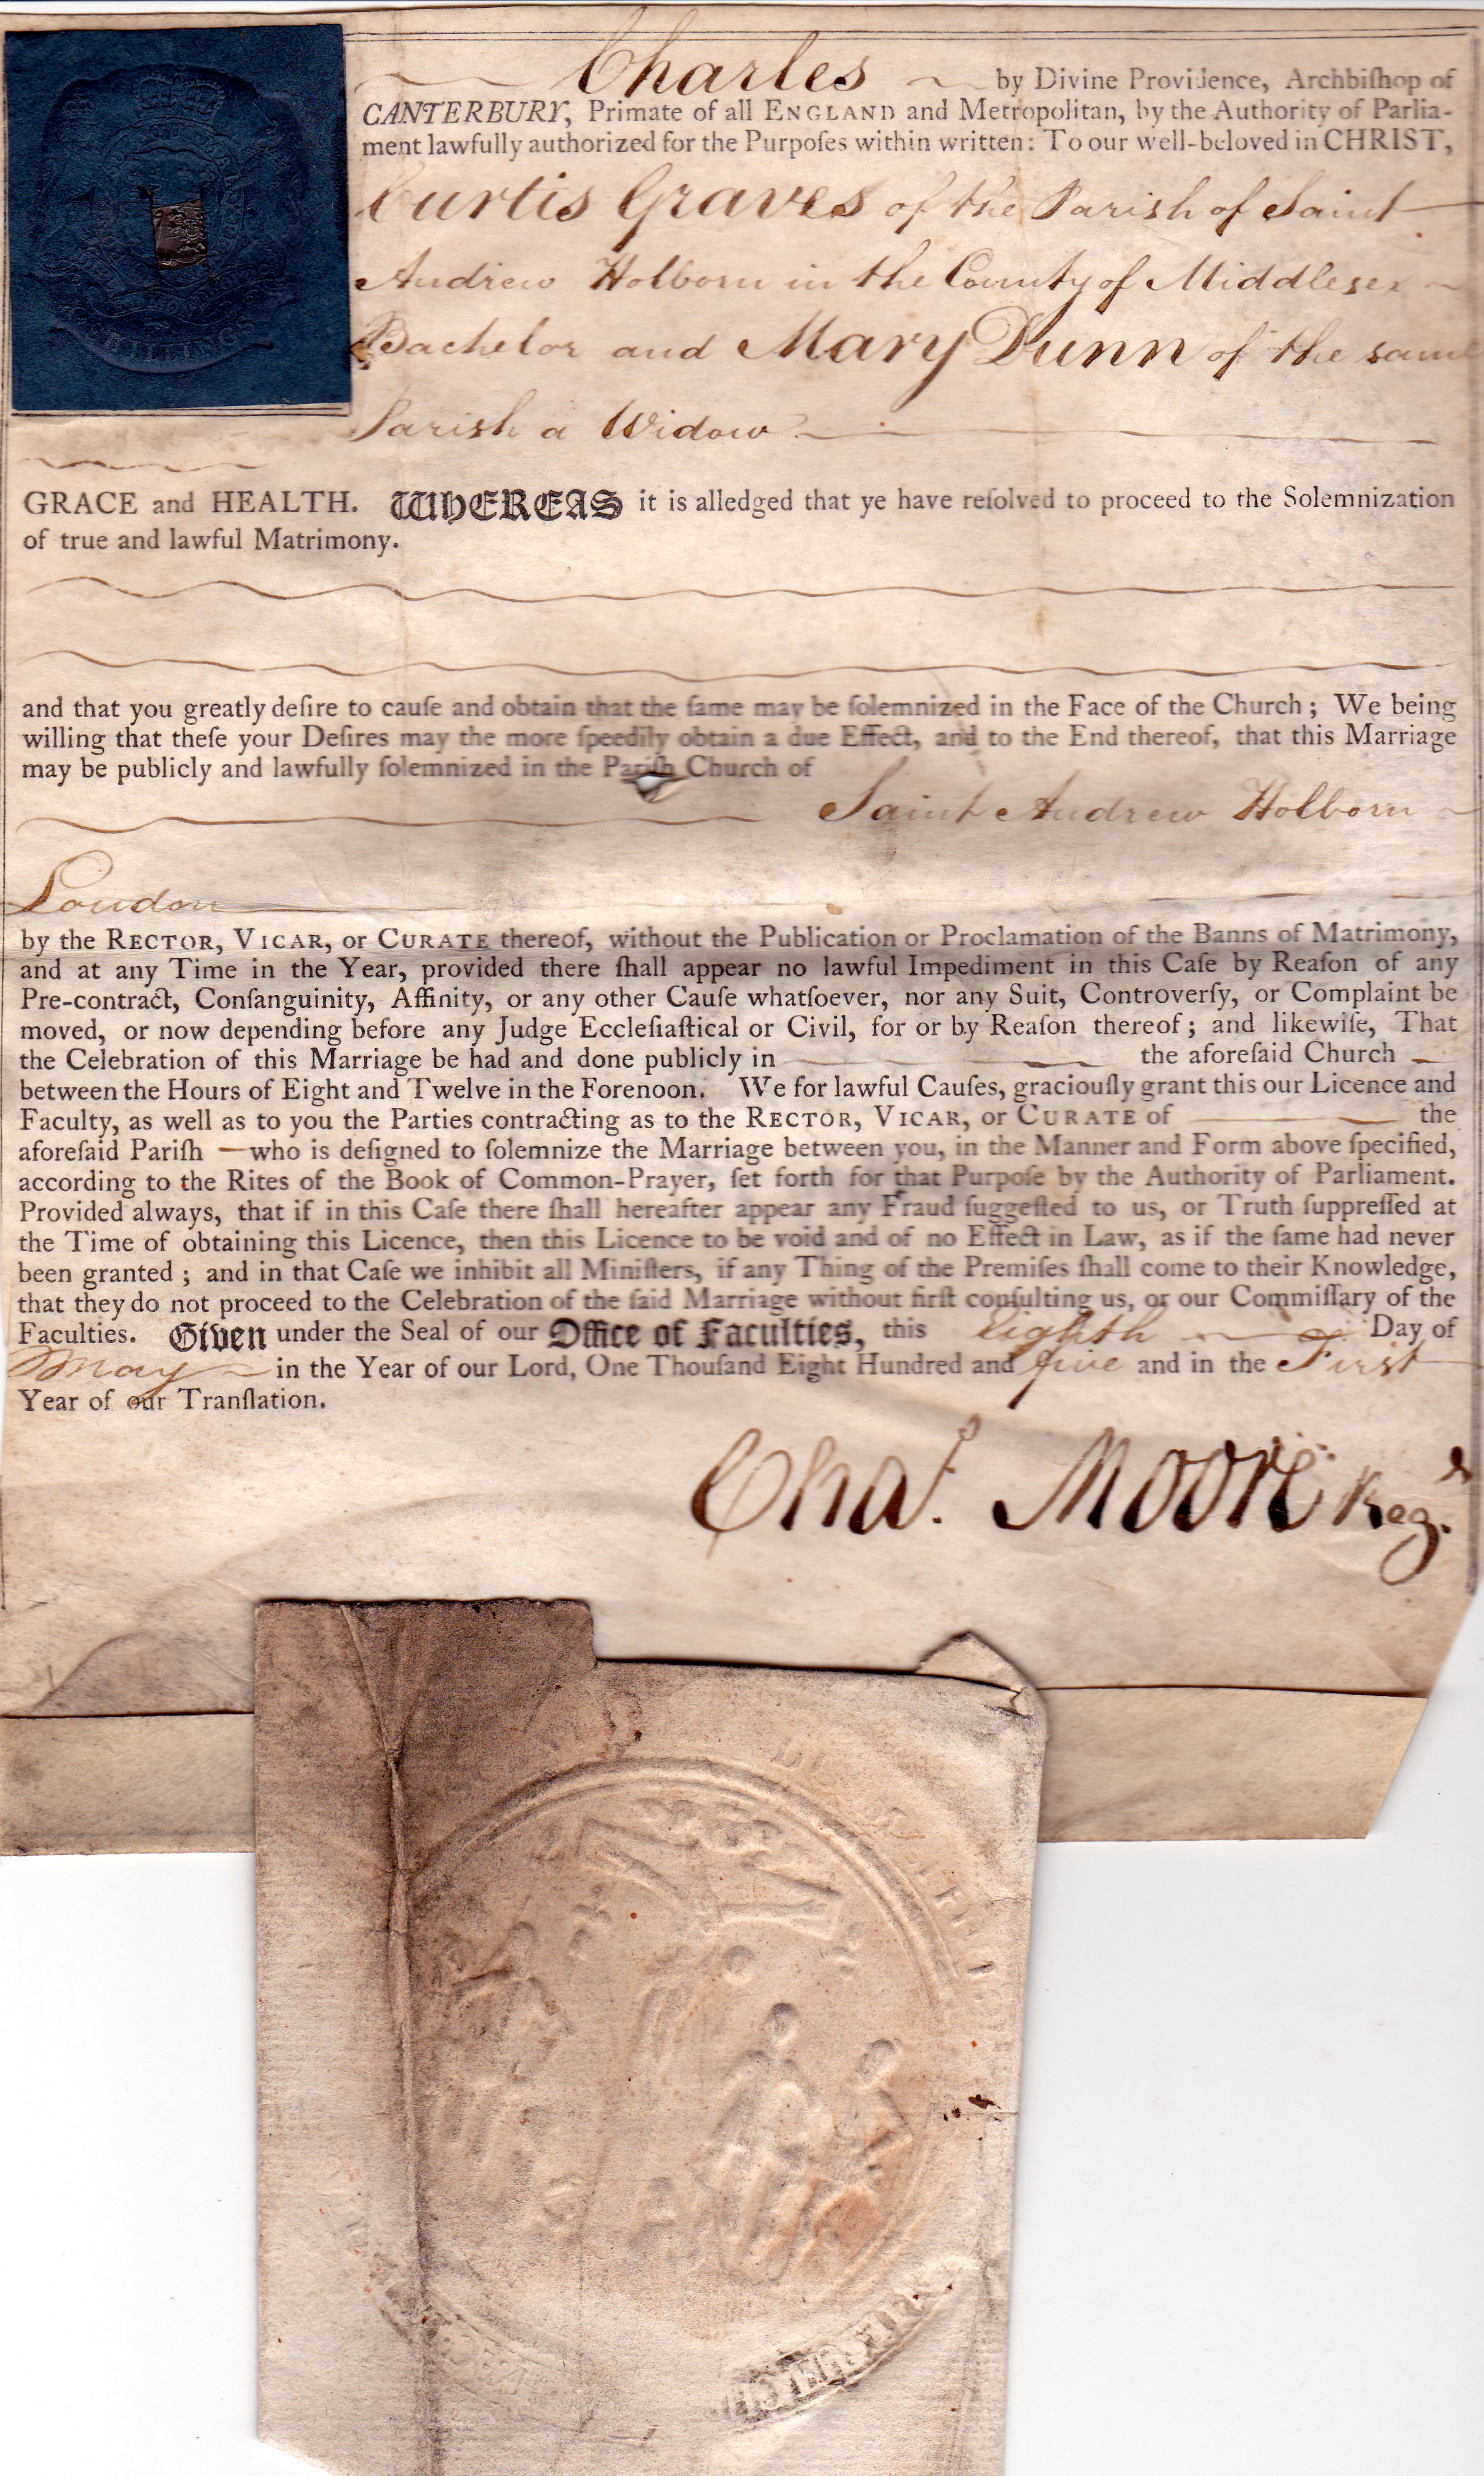 Charles by Divine Providence, Archbiſhop of
CANTERBURY, Primate of all ENGLAND and Metropolitan, by the Authority of Parlia-
ment lawfully authorized for the Purpoſes within written: To our well-beloved in CHRIST,
Curtis Graves of the Parish of Saint
Andrew Holborn in the County of Middlesex
Bachelor and Mary Dunn of the same
Parish a Widow
GRACE and HEALTH. WHEREAS it is alledged that ye have reſolved to proceed to the Solemnization
of true and lawful Matrimony.
and that you greatly deſire to cauſe and obtain that the ſame may be ſolemnized in the Face of the Church; We being
willing that theſe your Deſires may the more ſpeedily obtain a due Effect, and to the End thereof, that this Marriage
may be publicly and lawfully ſolemnized in the Pariſh Church of
Saint Andrew Holborn
London
by the RECTOR, VICAR, or CURATE thereof, without the Publication or Proclamation of the Banns of Matrimony,
and at any Time in the Year, provided there ſhall appear no lawful Impediment in this Caſe by Reaſon of any
Pre-contract, Conſanguinity, Affinity, or any other Cauſe whatſoever, nor any Suit, Controverſy, or Complaint be
moved, or now depending before any Judge Eccleſiaſtical or Civil, for or by Reaſon thereof; and likewiſe, That
the Celebration of this Marriage be had and done publicly in the aforeſaid Church
between the Hours of Eight and Twelve in the Forenoon. We for lawful Cauſes, graciouſly grant this our Licence and
Faculty, as well as to you the Parties contracting as to the RECTOR, VICAR, or CURATE of the
aforeſaid Pariſh — who is deſigned to ſolemnize the Marriage between you, in the Manner and Form above ſpecified,
according to the Rites of the Book of Common-Prayer, ſet forth for that Purpoſe by the Authority of Parliament.
Provided always, that if in this Caſe there ſhall hereafter appear any Fraud ſuggeſted to us, or Truth ſuppreſſed at
the Time of obtaining this Licence, then this Licence to be void and of no Effect in Law, as if the ſame had never
been granted; and in that Caſe we inhibit all Miniſters, if any Thing of the Premiſes ſhall come to their Knowledge,
that they do not proceed to the Celebration of the ſaid Marriage without firſt conſulting us, or our Commiſſary of the
Faculties. Given under the Seal of our Office of Faculties, this eighth Day of
May in the Year of our Lord, One Thouſand Eight Hundred and five and in the First
Year of our Tranſlation.
Chas. Moore Regr.